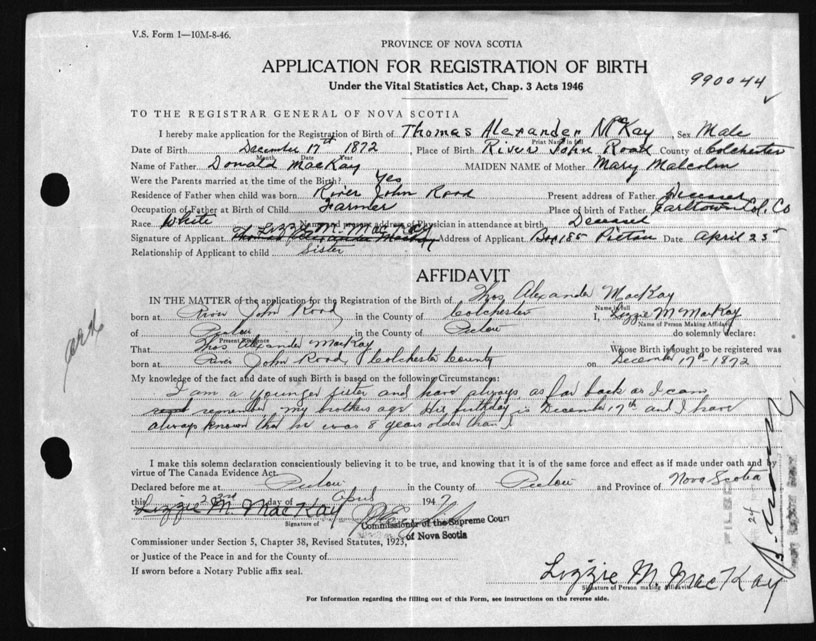 V.S. Form 1—10M-8-46.
PROVINCE OF NOVA SCOTIA
APPLICATION FOR REGISTRATION OF BIRTH
990044
Under the Vital Statistics Act, Chap. 3 Acts 1946
TO THE REGISTRAR GENERAL OF NOVA SCOTIA
I hereby make application for the Registration of Birth of Thomas Alexander McKay, Sex Male
Print Name in full
Date of Birth December 17st 1872, Place of Birth River John Road County of Colchester
Month Date Year
Name of Father Donald MacKay MAIDEN NAME of Mother Mary Malcolm
Were the Parents married at the time of the Birth? Yes
Residence of Father when child was born River John Road Present address of Father Deceased
Occupation of Father at Birth of Child Farmer Place of birth of Father Earltown Col. Co
Race White Name and present address of Physician in attendance at birth Deceased
Signature of Applicant Lizzie M. MacKay Thomas Alexander MacKay Address of Applicant Box 185 Pictou Date April 23rd
Relationship of Applicant to child Sister
AFFIDAVIT
IN THE MATTER of the application for the Registration of Birth of Thos Alexander MacKay
Name in full
born at River John Road in the County of Colchester I, Lizzie M MacKay
Name of Person Making Affidavit
of Pictou in the County of Pictou do solemnly declare:
Present Residence
That Thos Alexander MacKay Whose Birth is sought to be registered was
born at River John Road, Colchester County on December 17th - 1872
My knowledge of the fact and date of such Birth is based on the following Circumstances:
I am a younger sister and have always as far back as I can
remember my brothers age His birthday is December 17th and I have
always known that he was 8 years older than I
I make this solemn declaration conscientiously believing it to be true, and knowing that it is of the same force and effect as if made under oath and by
virtue of The Canada Evidence Act.
Declared before me at Pictou in the County of Pictou and Province of Nova Scotia
this 23rd day of April 1947
Lizzie M MacKay
Signature of
Commissioner of the Supreme Court
of Nova Scotia
Commissioner under Section 5, Chapter 38, Revised Statutes, 1923,
or Justice of the Peace in and for the County of
If sworn before a Notary Public affix seal.
Lizzie M MacKay
Signature of Person making Affidavit
For Information regarding the filling out of this Form, see instructions on the reverse side.
24